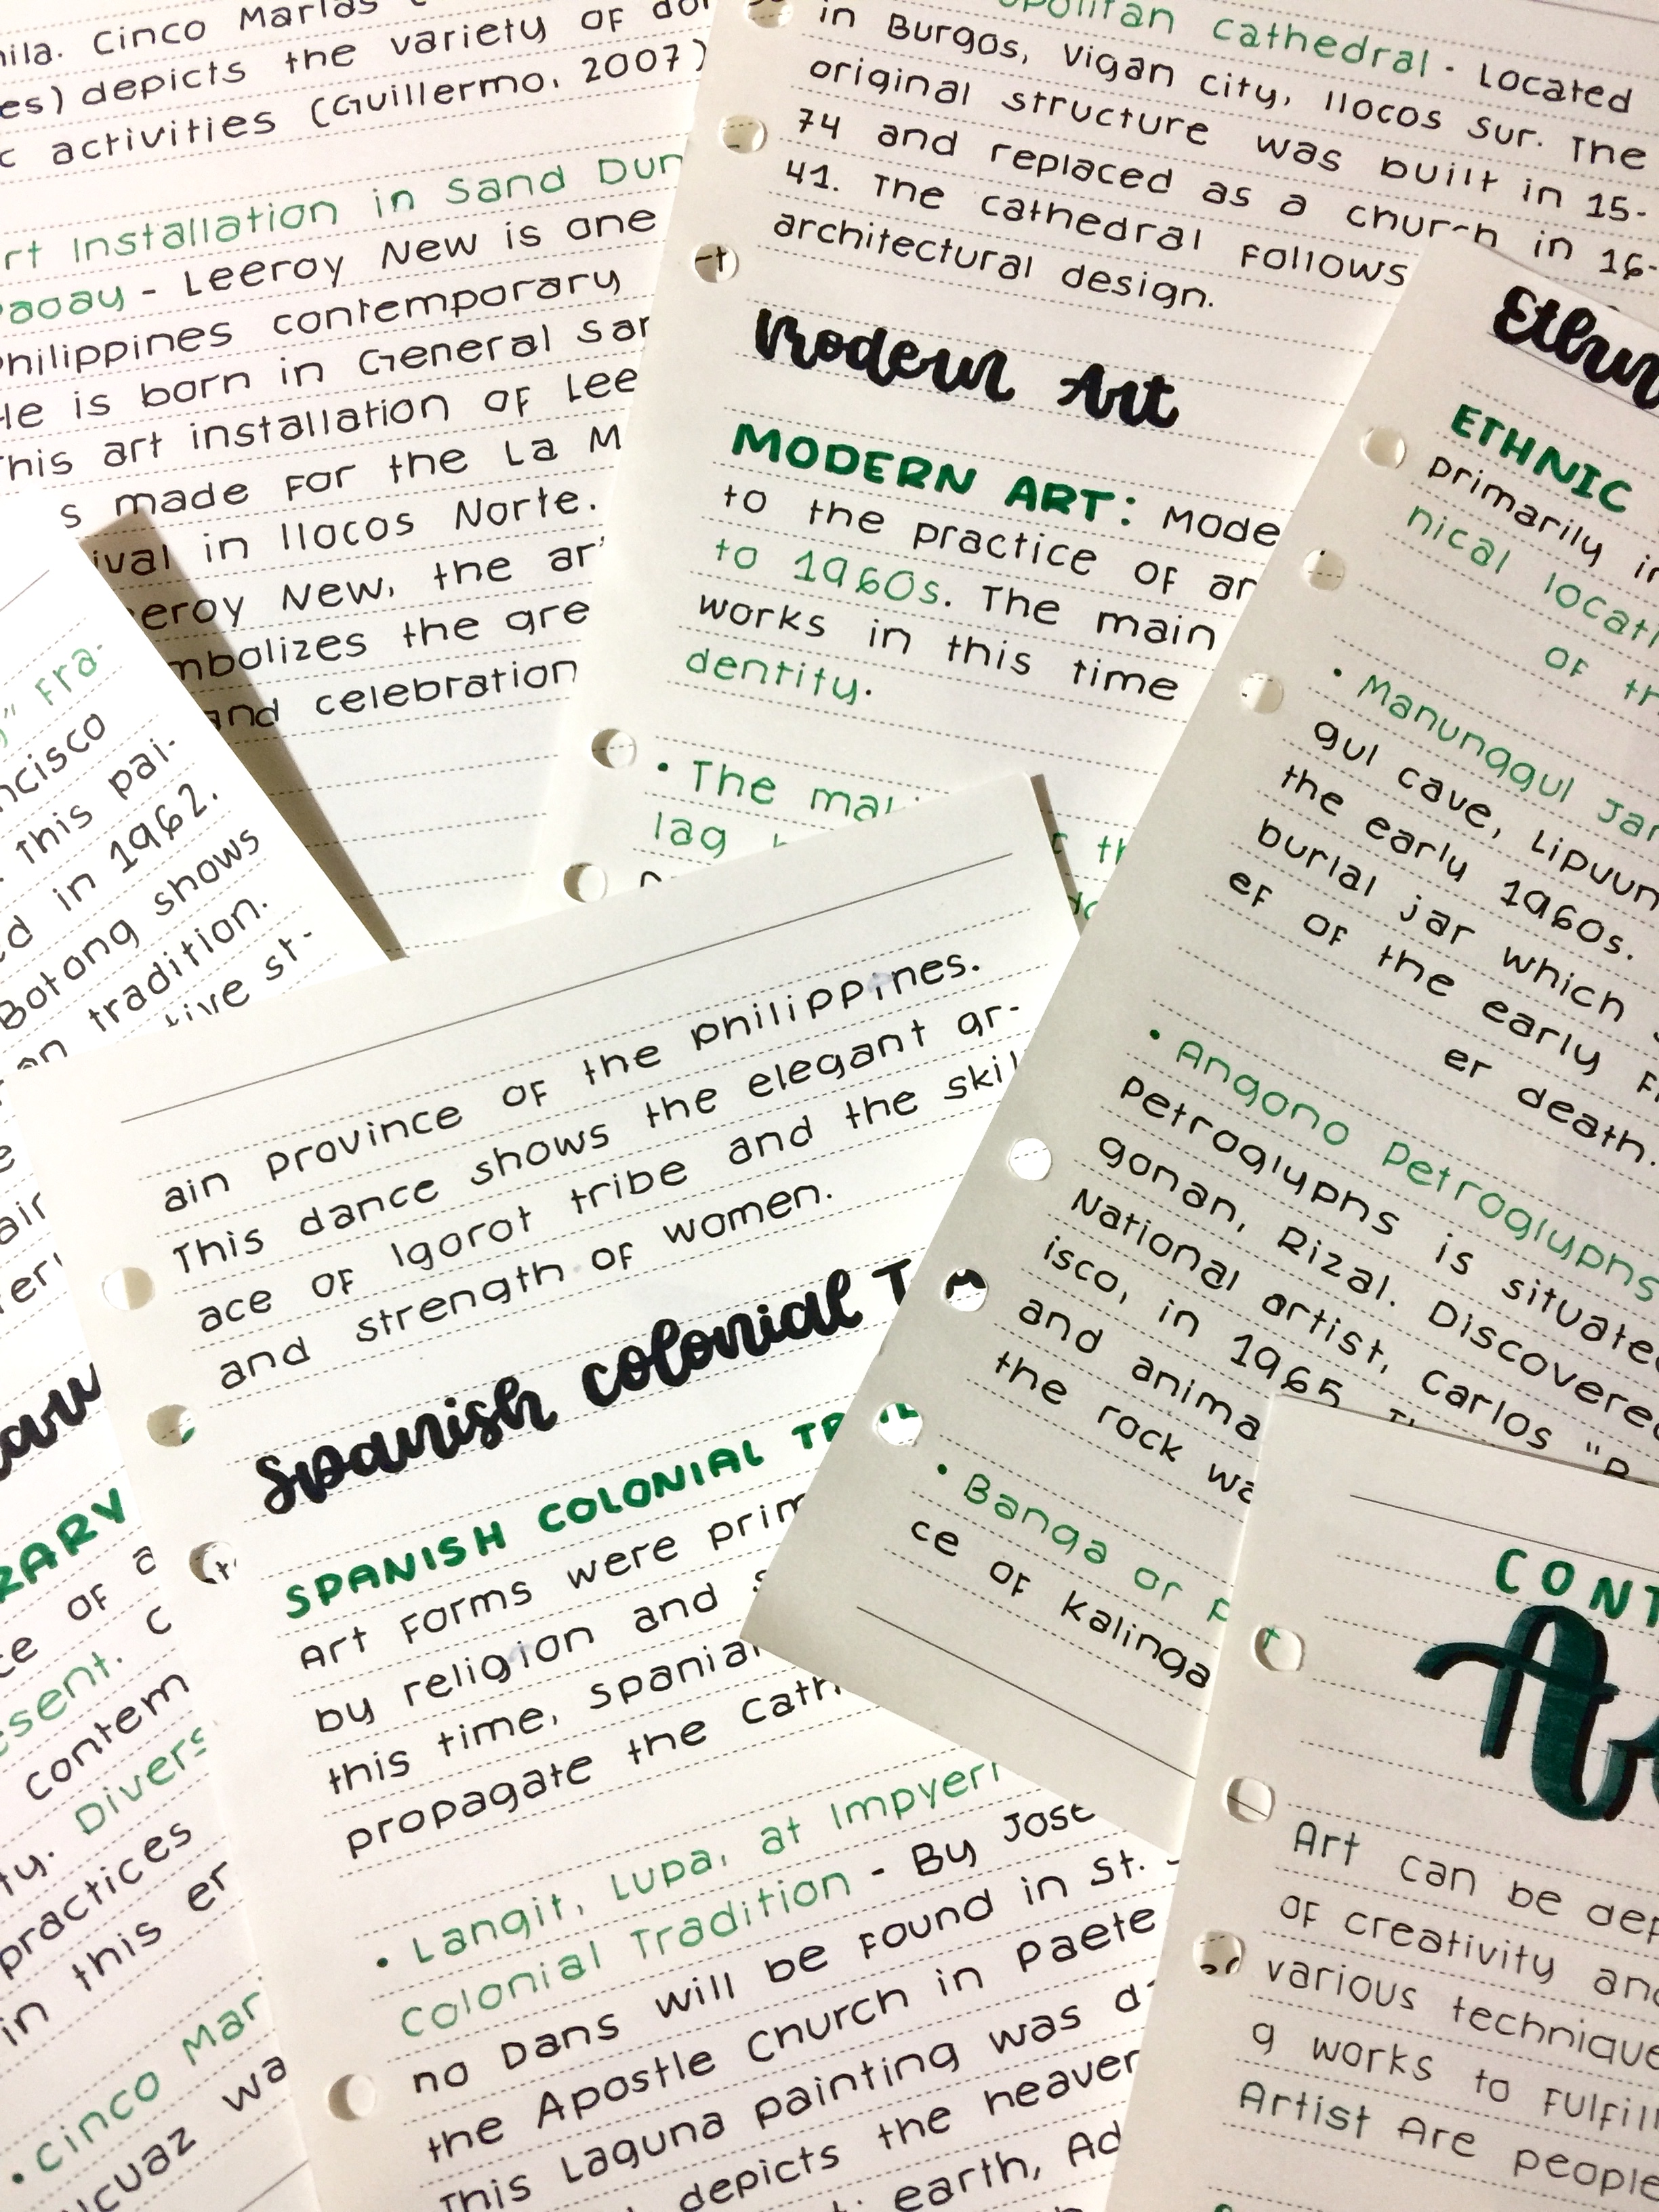 Cinco Marias
es) depicts the variety of
c activities (Guillermo, 2007)
Installation in Sand
Paoay - Leeroy New is one
Philippines contemporary
He is born in General
This art installation of Lee
made for the La
in Ilocos Norte.
eroy New, the
the gre
and celebration
Cathedral - Located
in Burgos, Vigan City, Ilocos Sur. The
original structure was built in 15-
74 and replaced as a church in 16-
41. The cathedral follows
architectural design.
Modern Art
MODERN ART: Mode
to the practice of ar
to 1960s. The main
works in this time
dentity.
• The
lag
ETHNIC
primarily
nical
of
• Manunggul Jar
gul cave, Lipuun
the early 1960s.
burial jar which
ef of the early
er death.
• Angono Petroglyphs
Petroglyphs is situated
gonan, Rizal. Discovered
National artist, Carlos "B
isco, in 1965.
and anima
the rock wa
• Banga or P
ce of Kalinga
Fra-
ncisco
This pai-
in 1962.
Botong shows
tradition.
st-
ain province of the Philippines.
This dance shows the elegant gr-
ace of Igorot tribe and the skil
and strength of women.
Spanish Colonial
SPANISH COLONIAL
Art forms were prim
by religion and
this time, Spania
propagate the Cath
• Langit, Lupa, at Impyer
Colonial Tradition - By Jose
no Dans will be found in St.
the Apostle Church in Paete
This Laguna painting was
depicts the heaven
earth, Ad
of
sent. C
contem
ty. Divers
practices
in this er
• Cinco Mar
wa
CONT
Art can be dep
of creativity and
various technique
g works to fulfill
Artist Are people